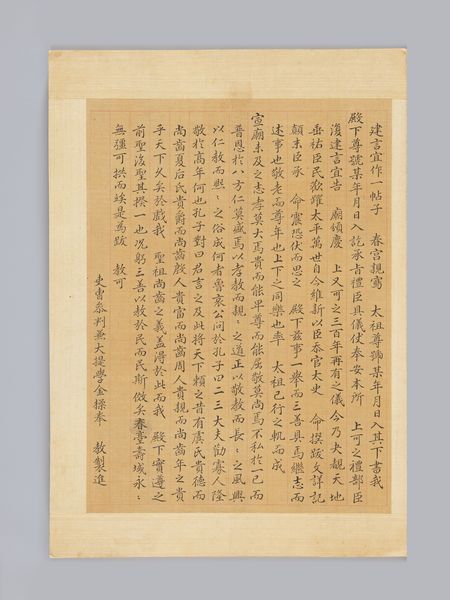 建言宜作一帖子 春宮親寫 太祖尊號某年月日入其下書我
殿下尊號某年月日入訖承旨禮臣具儀仗奉安本所 上可之禮部臣
復建言宜告 廟頒慶 上又可之三百年再有之儀今乃夬覩天地
垂祐臣民歡耀太平萬世自今維新以臣忝官太史 命撰跋文詳記
顚末臣承 命震恐伏而思之 殿下玆事一擧而三善具焉繼志而
述事也敬老而尊年也上下之同樂也率 太祖已行之軌而成
宣廟未及之志孝莫大焉貴而能卑尊而能屈敬莫尚焉不私於一己而
普恩於八方仁莫盛焉以孝敎而親〻之道正以敬敎而長〻之風興
以仁敎而熙〻之俗成何者魯哀公問於孔子曰二三大夫勸寡人隆
敬於高年何也孔子對曰君言之及此將天下賴之昔有虞氏貴德而
尚齒夏后氏貴爵而尚齒殷人貴富而尚齒周人貴親而尚齒年之貴
乎天下久矣於戱我 聖祖尚齒之義盖得於此而我 殿下實遵之
前聖後聖其揆一也況躬三善以敎於民而民斯傚矣春臺壽域永〻
無彊可拱而竢是爲跋 敎可
吏曹參判兼大提學金楺奉 敎製進